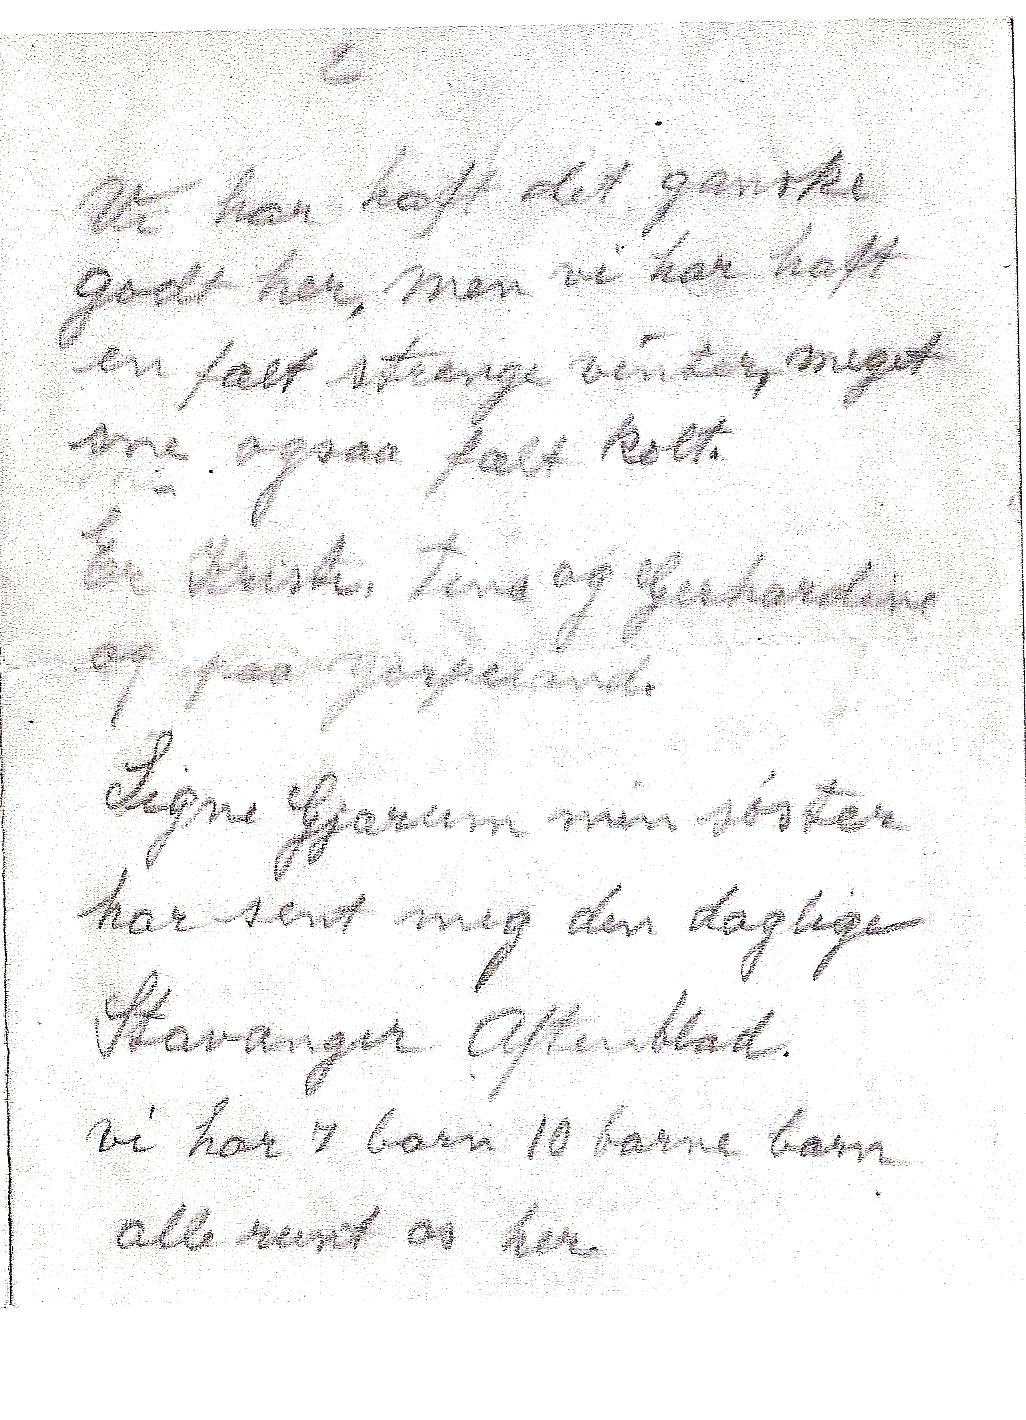 2
Vi har haft det ganske
godt her, men vi har haft
en fælt strenge vinter, meget
sne ogsaa fælt kolt.
Er Kristi. Tina og Gerhardine
og paa Jørpeland.
Signe Gjærum min søster
har sent meg den daglige
Stavanger Aftenblad.
vi har 7 barn 10 barne barn
alle runt os her.